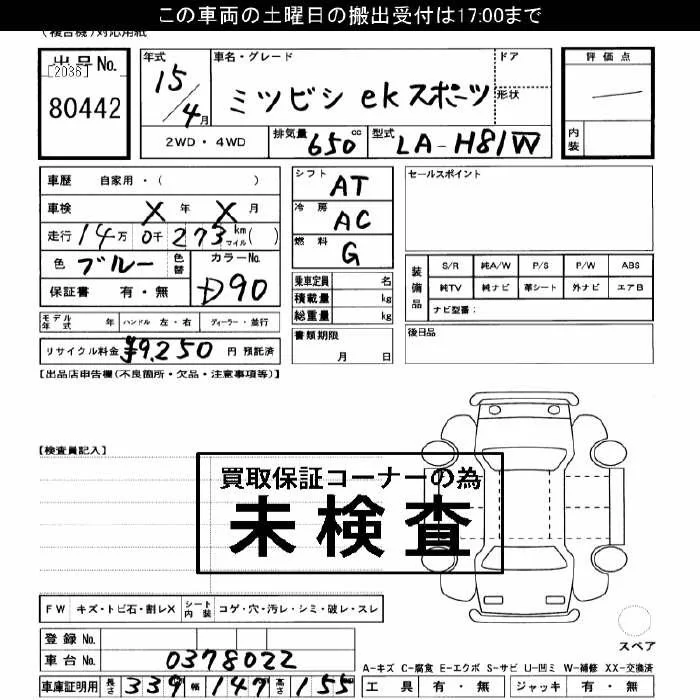 この車両の土曜日の搬出受付は17:00まで
(複合機)対応用紙
出品No. [2036] 80442
年式 15/4月
車名・グレード ミツビシ ekスポーツ
ドア
形状
評価点
内装
2WD・4WD
排気量 650cc
型式 LA-H81W
車歴 自家用・( )
車検 X年 X月
走行 14万 0千 273 km マイル( )
色 ブルー 色替 カラーNo. D90
保証書 有・無
モデル年式 年 ハンドル 左・右 ディーラー・並行
リサイクル料金 ¥9,250 円 預託済
シフト AT
冷房 AC
燃料 G
乗車定員 名
積載量 kg
総重量 kg
書類期限
月 日
セールスポイント
装備品
S/R 純A/W P/S P/W ABS
純TV 純ナビ 革シート 外ナビ エアB
ナビ型番:
後日品
【出品店申告欄(不良箇所・欠品・注意事項等)】
【検査員記入】
買取保証コーナーの為
未検査
FW キズ・トビ石・割レX シート内装 コゲ・穴・汚レ・シミ・破レ・スレ
登録No.
車台No. 0378022
車庫証明用 長さ 339 幅 147 高さ 155
スペア
A-キズ C-腐食 E-エクボ S-サビ U-凹ミ W-補修 XX-交換済
工具 有・無 ジャッキ 有・無